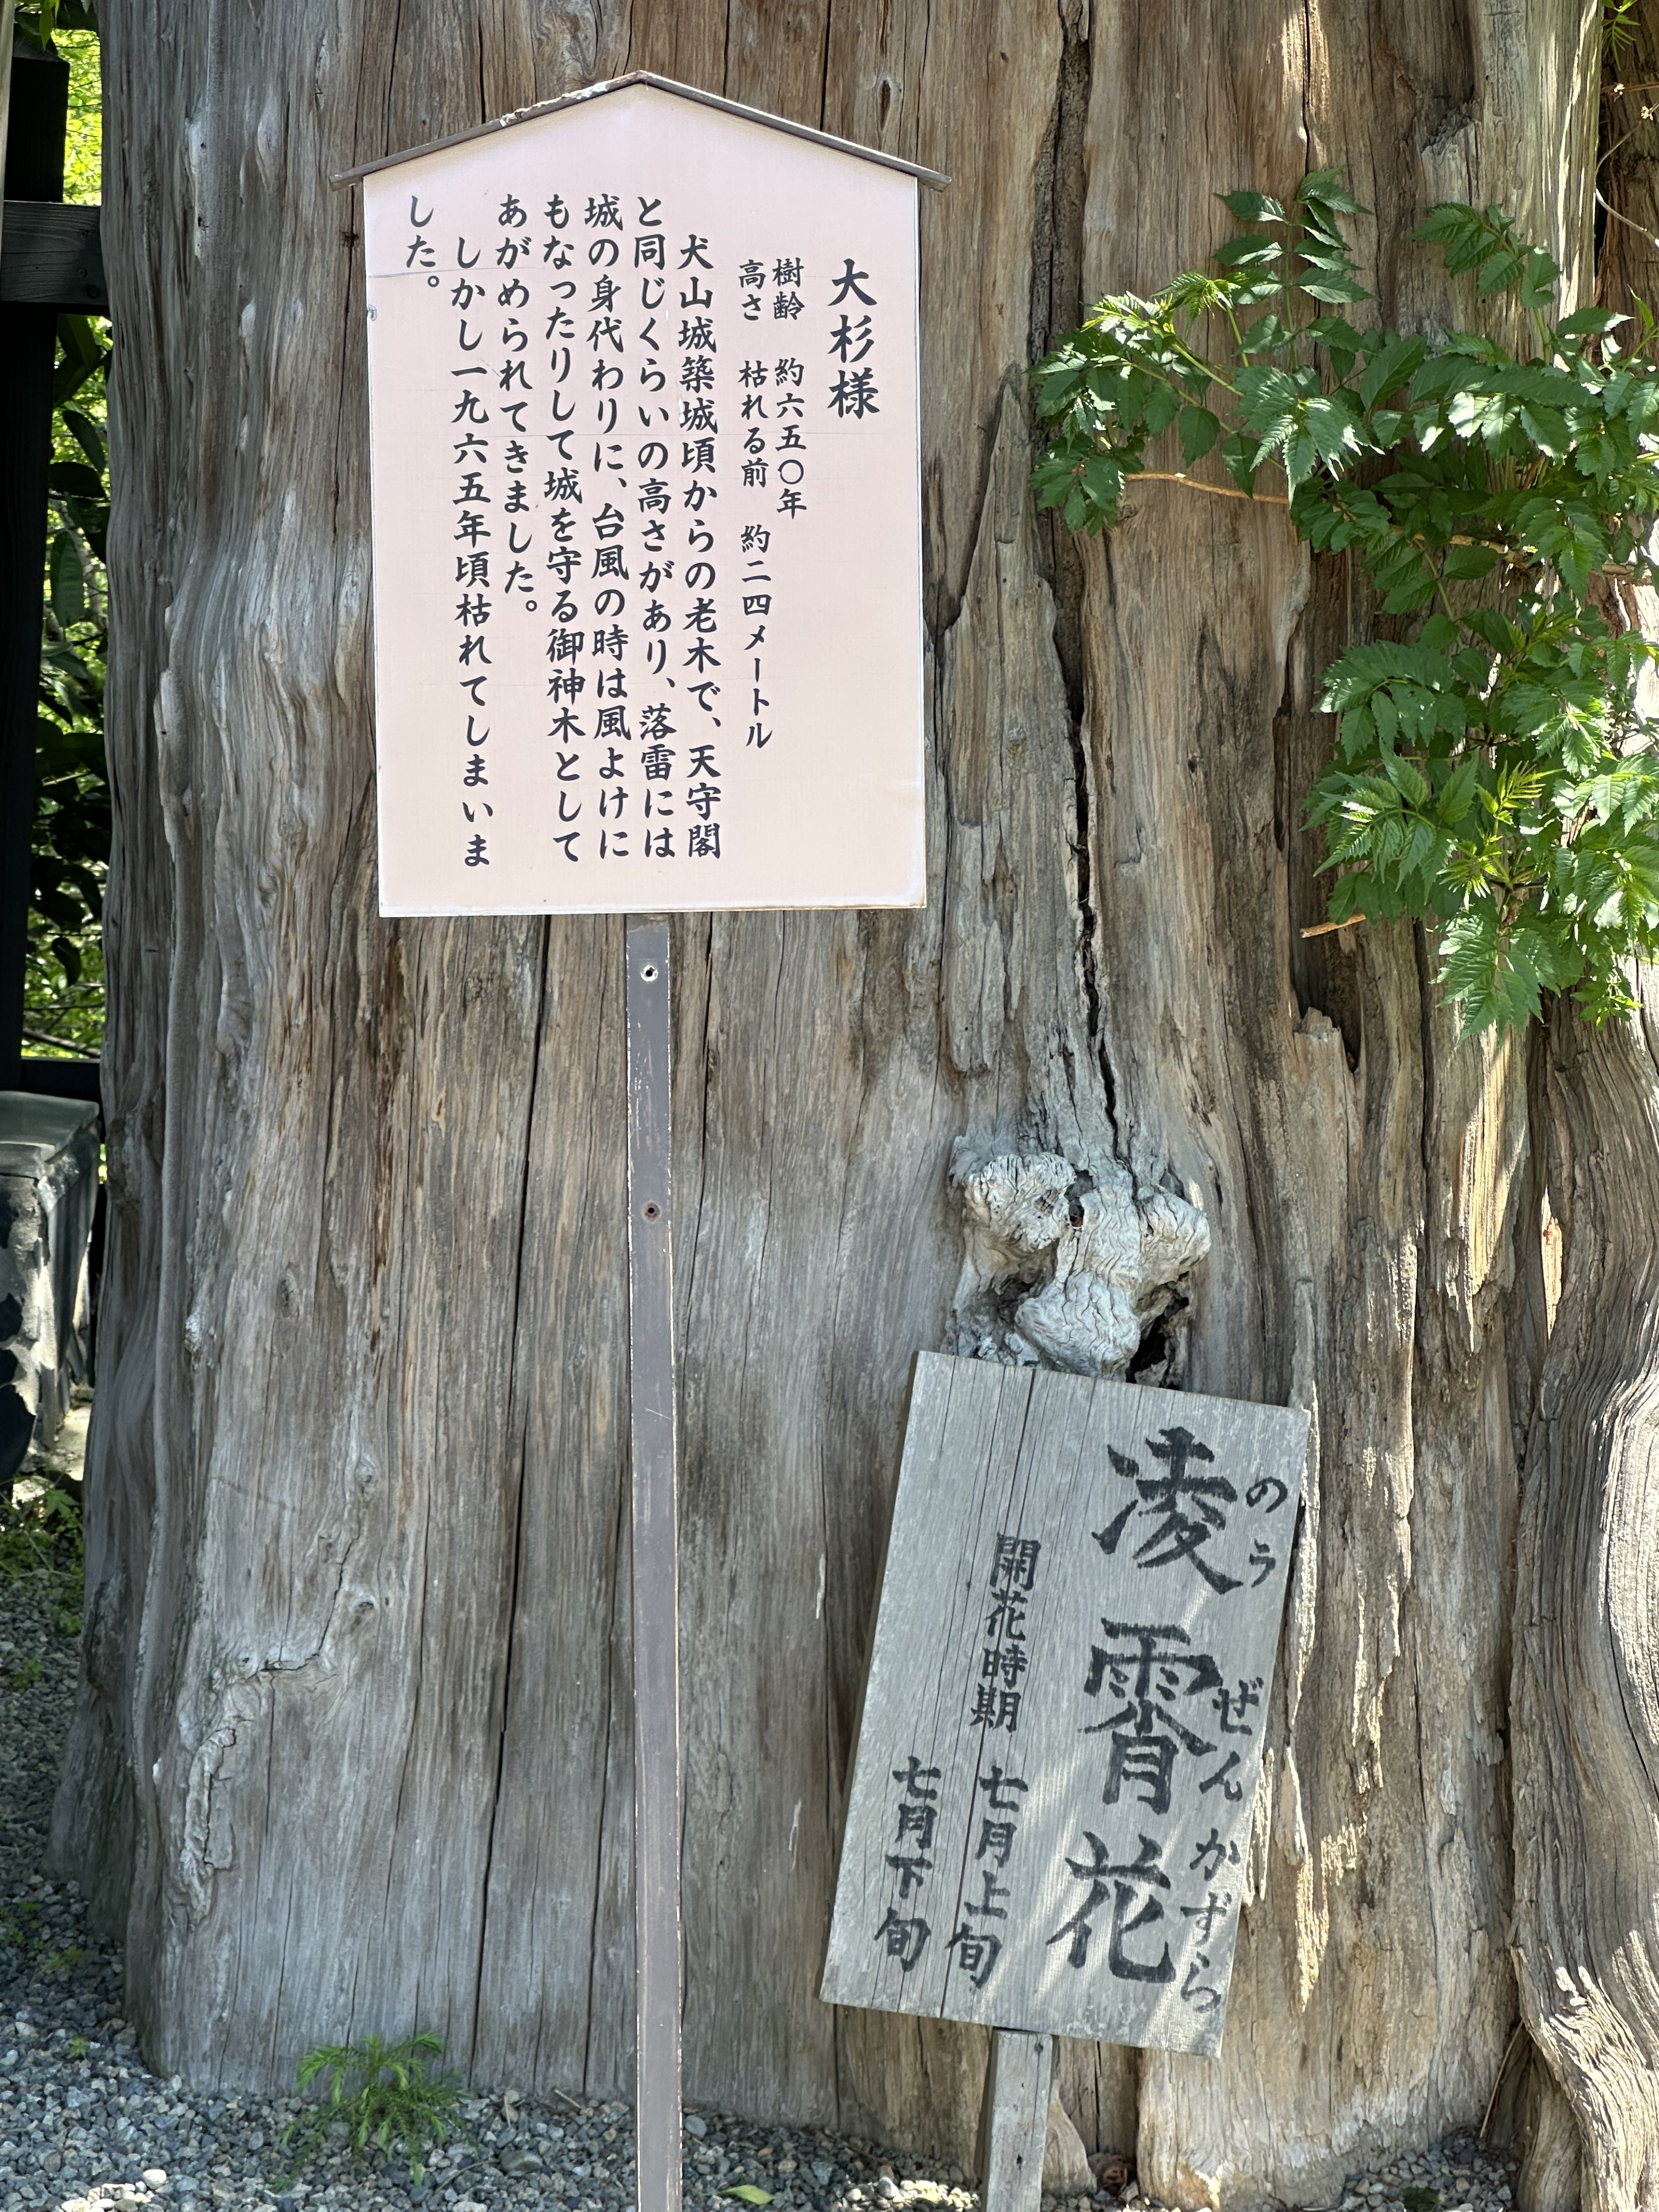 大杉様
樹齢　約六五〇年
高さ　枯れる前　約二四メートル
犬山城築城頃からの老木で、天守閣
と同じくらいの高さがあり、落雷には
城の身代わりに、台風の時は風よけに
もなったりして城を守る御神木として
あがめられてきました。
しかし一九六五年頃枯れてしまいま
した。
のうぜんかずら
凌霄花
開花時期　七月上旬
七月下旬